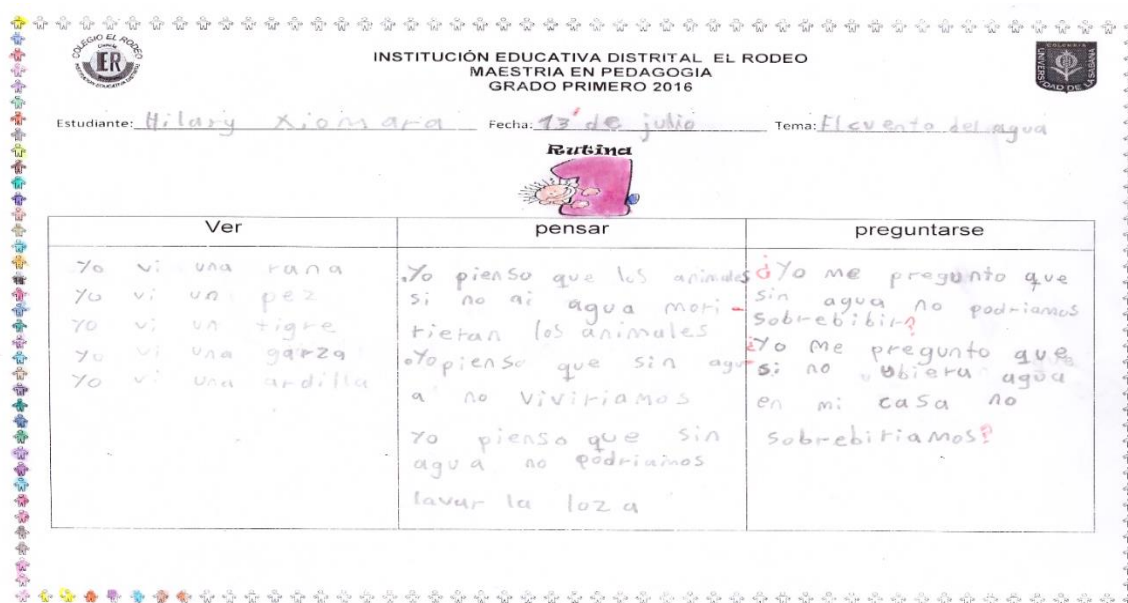 COLEGIO EL RODEO
ER
COLOMBIA
UNIVERSIDAD DE LA SABANA
INSTITUCIÓN EDUCATIVA DISTRITAL EL RODEO
MAESTRIA EN PEDAGOGIA
GRADO PRIMERO 2016
Estudiante: Hilary Xiomara Fecha: 13 de julio Tema: El cuento del agua
Rutina
1
Ver
Yo vi una rana
Yo vi un pez
Yo vi un tigre
Yo vi una garza
Yo vi una ardilla
pensar
.Yo pienso que los animales
si no ai agua mori-
rieran los animales
.Yo pienso que sin agu-
a no viviriamos
Yo pienso que sin
agua no podriamos
lavar la loza
preguntarse
¿Yo me pregunto que
sin agua no podriamos
sobrebibir?
¿Yo me pregunto que
si no ubiera agua
en mi casa no
sobrebiriamos?